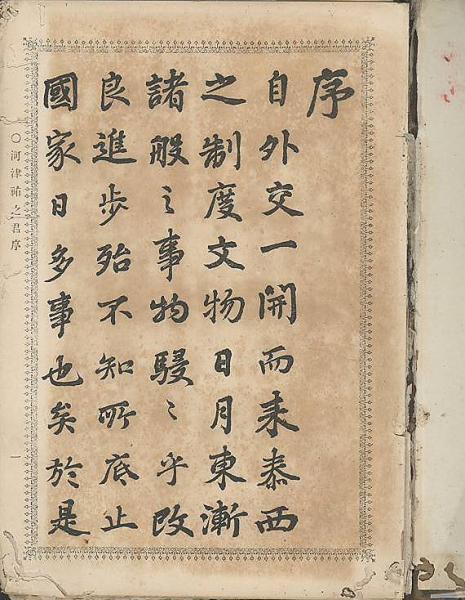 序
自外交一開而来泰西
之制度文物日月東漸
諸般之事物駸〻乎改
良進歩殆不知所底止
國家日多事也矣於是
〇河津祐之君序
一